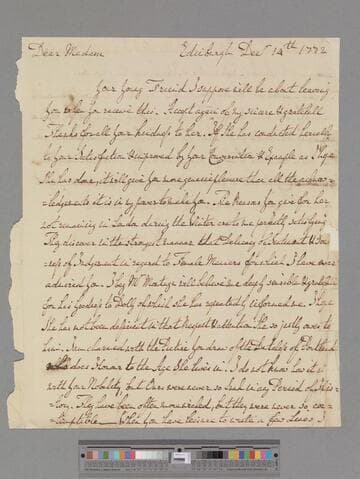 Dear Madam Edinburgh Decr 14th 1772
Your Young Friend I suppose will be about leaving
you before you receive this. Accept again of my sincere & gratefull
Thanks for all your kindness to her. If She has conducted herself
to your Satisfaction & improved by your Conversation & Example as I hope
She has done, it will give you more genuine pleasure than all the acknow-
ledgements it is in my power to make you. The Reasons you give for her
not remaining in London during the Winter are to me perfectly satisfying
They discover in the strongest manner that Delicacy of Sentiment & Cor-
rectness of Judgement in regard to Female Manners for which I have ever
admired you. I beg Mr Montagu will believe me deeply sensible & gratefull
for his Goodness to Dolly of which she has repeatedly informed me. I hope
She has not been deficient in that Respect & attention She so justly owes to
him. I am charmed with the Picture you draw of the Dutchess of Portland
who does Honor to the Age She lives in. I do not know how it is
with your Nobility, but Ours were never so Sunk in any Period of our His-
tory. They have been often more wicked, but they were never so con-
temptible — When you have leisure to write a few Lines I